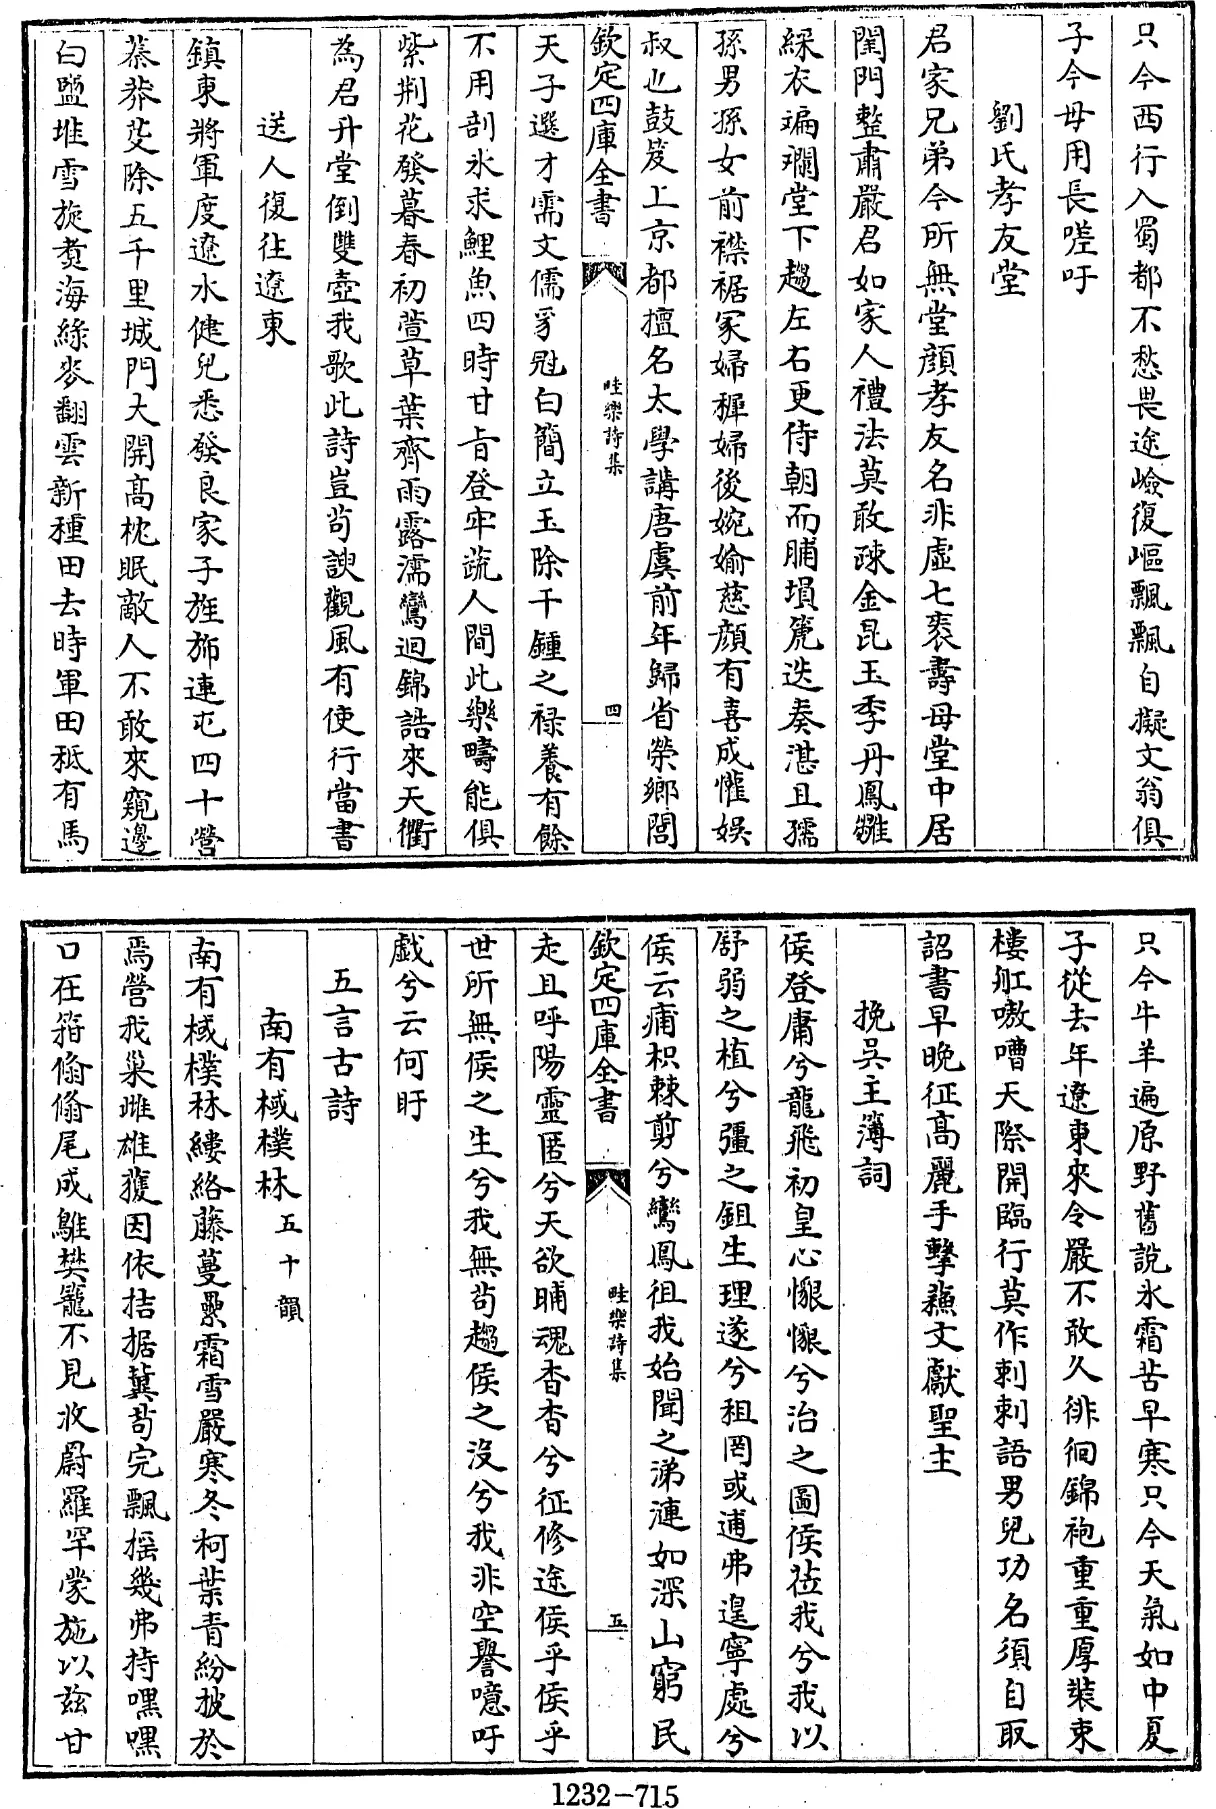 只今西行入蜀都不愁畏途嶮復嶇飄飄自擬文翁俱
子今毋用長嗟吁
劉氏孝友堂
君家兄弟今所無堂顏孝友名非虛七袠壽母堂中居
閨門整肅嚴君如家人禮法莫敢疎金昆玉季丹鳳雛
綵衣斒斕堂下趨左右更侍朝而脯塤箎迭奏湛且孺
孫男孫女前襟裾冢婦穉婦後婉婾慈顏有喜成懽娛
叔也鼓篋上京都擅名太學講唐虞前年歸省榮鄉閭
欽定四庫全書
畦樂詩集
四
天子選才需文儒豸冠白簡立玉除千鍾之祿養有餘
不用剖冰求鯉魚四時甘旨登牢蔬人間此樂疇能俱
紫荆花發暮春初萱草葉齊雨露濡鸞迴錦誥來天衢
為君升堂倒雙壺我歌此詩豈苟諛觀風有使行當書
送人復往遼東
鎮東將軍度遼水健兒悉發良家子旌旆連屯四十營
蓁莽芟除五千里城門大開高枕眠敵人不敢來窺邊
白鹽堆雪旋煑海綠麥翻雲新種田去時軍田秪有馬
只今牛羊遍原野舊說氷霜苦早寒只今天氣如中夏
子從去年遼東來令嚴不敢久徘徊錦袍重重厚裝束
樓舡嗷嘈天際開臨行莫作刺刺語男兒功名須自取
詔書早晚征高麗手擊蘓文獻聖主
挽吳主簿詞
侯登庸兮龍飛初皇心懇懇兮治之圖侯莅我兮我以
舒弱之植兮彊之鉏生理遂兮租罔或逋弗遑寧處兮
侯云痡枳棘剪兮鸞鳳徂我始聞之涕漣如深山窮民
欽定四庫全書
畦樂詩集
五
走且呼陽靈匿兮天欲晡魂杳杳兮征修途侯乎侯乎
世所無侯之生兮我無苟趨侯之没兮我非空譽噫吁
戯兮云何盱
五言古詩
南有棫樸林五十韻
南有棫樸林縷絡藤蔓纍霜雪嚴寒冬柯葉青紛披於
焉營我巢雌雄獲因依拮据冀苟完飄搖幾弗持嘿嘿
口在箝翛翛尾成鵻樊籠不見收罻羅罕蒙施以兹甘
1232-715